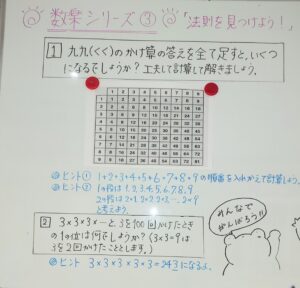 数楽シリーズ③ 「法則を見つけよう!」
1 九九(くく)のかけ算の答えを全て足すと、いくつ
になるでしょうか?工夫して計算して解きましょう。
1 2 3 4 5 6 7 8 9
1 1 2 3 4 5 6 7 8 9
2 2 4 6 8 10 12 14 16 18
3 3 6 9 12 15 18 21 24 27
4 4 8 12 16 20 24 28 32 36
5 5 10 15 20 25 30 35 40 45
6 6 12 18 24 30 36 42 48 54
7 7 14 21 28 35 42 49 56 63
8 8 16 24 32 40 48 56 64 72
9 9 18 27 36 45 54 63 72 81
ヒント① 1+2+3+4+5+6+7+8+9の順番を入れかえて計算しよう。
ヒント② 1の段は1,2,3,4,5,6,7,8,9
2の段は2×1,2×2,2×3…2×9
と考えよう。
2 3×3×3×…と、3を100回かけたとき
の1の位は何でしょうか?(3×3=9は
3を2回かけたこととします。)
ヒント 3×3×3×3×3=243になるよ。
みんなで
がんばろう!!